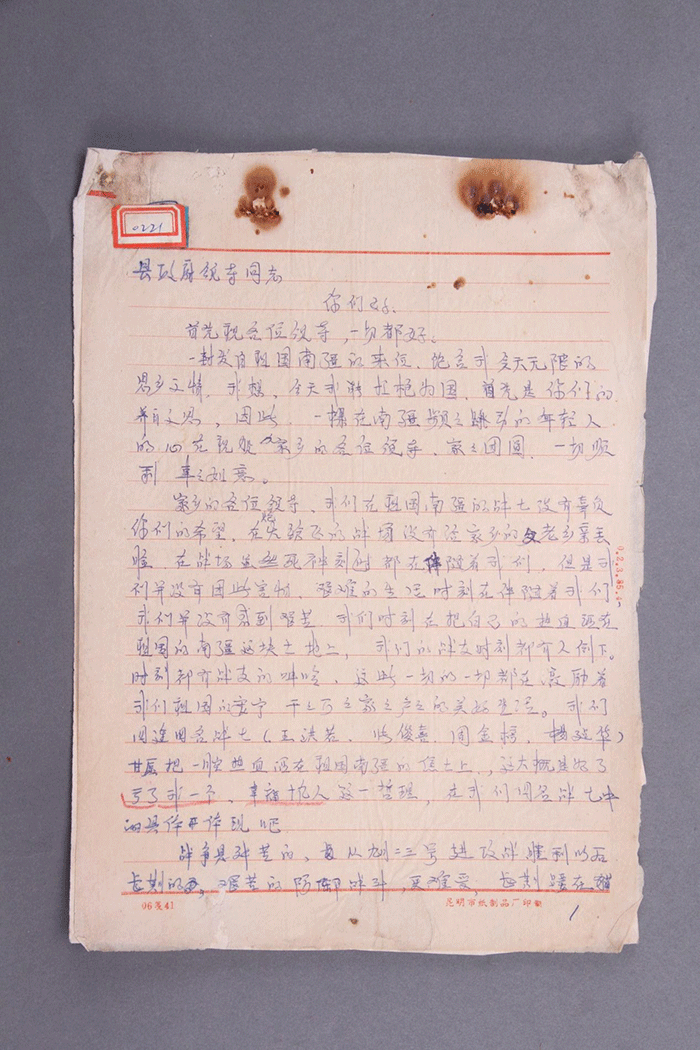 0221
县政府领导同志
你们好.
首先祝各位领导, 一切都好。
一封发自祖国南疆的来信, 饱含我多天无限的
思乡之情, 我想, 今天我能扛枪为国, 首先是你们的
养育之恩, 因此, 一棵在南疆频频跳动的年轻人
的心在祝愿家乡的各位领导, 家家团圆, 一切顺
利 事事如意。
家乡的各位领导, 我们在祖国南疆的战士没有辜负
你们的希望, 在火焰飞的战场没有给家乡的父老乡亲丢
脸, 在战场上死神刻时都在伴随着我们, 但是我
们并没有因此害怕, 艰难的生活时刻在伴随着我们
我们并没有感到艰苦 我们时刻在把自己的热血洒在
祖国的南疆这块土地上, 我们的战友时刻都有人倒下。
时刻都有战友的呻吟, 这些一切的一切都在激励着
我们祖国的安宁 千千万万之家之户之的美好生活。我们
同连四名战士( 王洪 俊喜 周金 杨 华)
甘愿把一腔热血洒在祖国南疆的 土上, 这大概是为了
亏了我一个, 幸福十亿人这一哲理, 在我们四名战士中
的具体体现吧
战争是艰苦的, 自从 二三号进攻战胜利以后
长期的, 艰苦的防御战斗, 更难 , 长期蹲在猫
06发41
昆明市纸制品厂印制
1